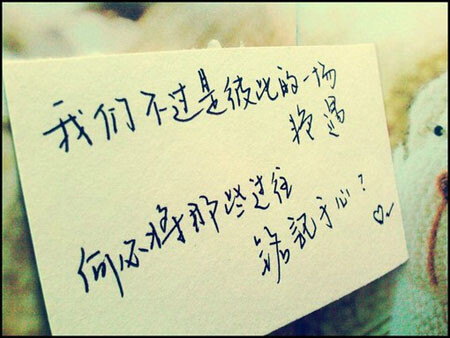 我们不过是彼此的一场
艳遇
何必将那些过往
铭记于心?